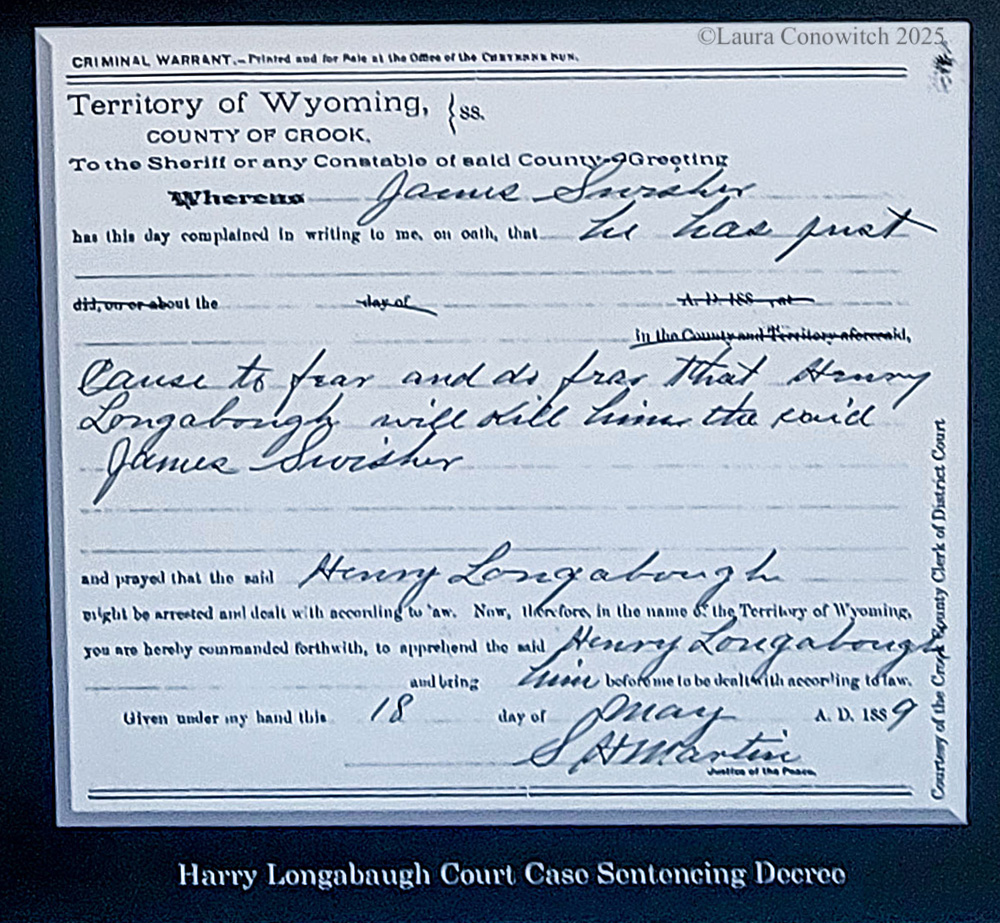 ©Laura Conowitch 2025
CRIMINAL WARRANT.—Printed and for Sale at the Office of the CHEYENNE SUN.
Territory of Wyoming, } ss.
COUNTY OF CROOK,
To the Sheriff or any Constable of said County—Greeting
Whereas James Swisher
has this day complained in writing to me, on oath, that he has just
did, on or about the day of A. D. 188 , at
in the County and Territory aforesaid,
Cause to fear and do fear that Henry
Longabough will kill him the said
James Swisher
and prayed that the said Henry Longabough
might be arrested and dealt with according to law. Now, therefore, in the name of the Territory of Wyoming,
you are hereby commanded forthwith, to apprehend the said Henry Longabough
and bring him before me to be dealt with according to law.
Given under my hand this 18 day of May A. D. 1889
S H Martin
Justice of the Peace.
Courtesy of the Crook County Clerk of District Court
Harry Longabaugh Court Case Sentencing Decree